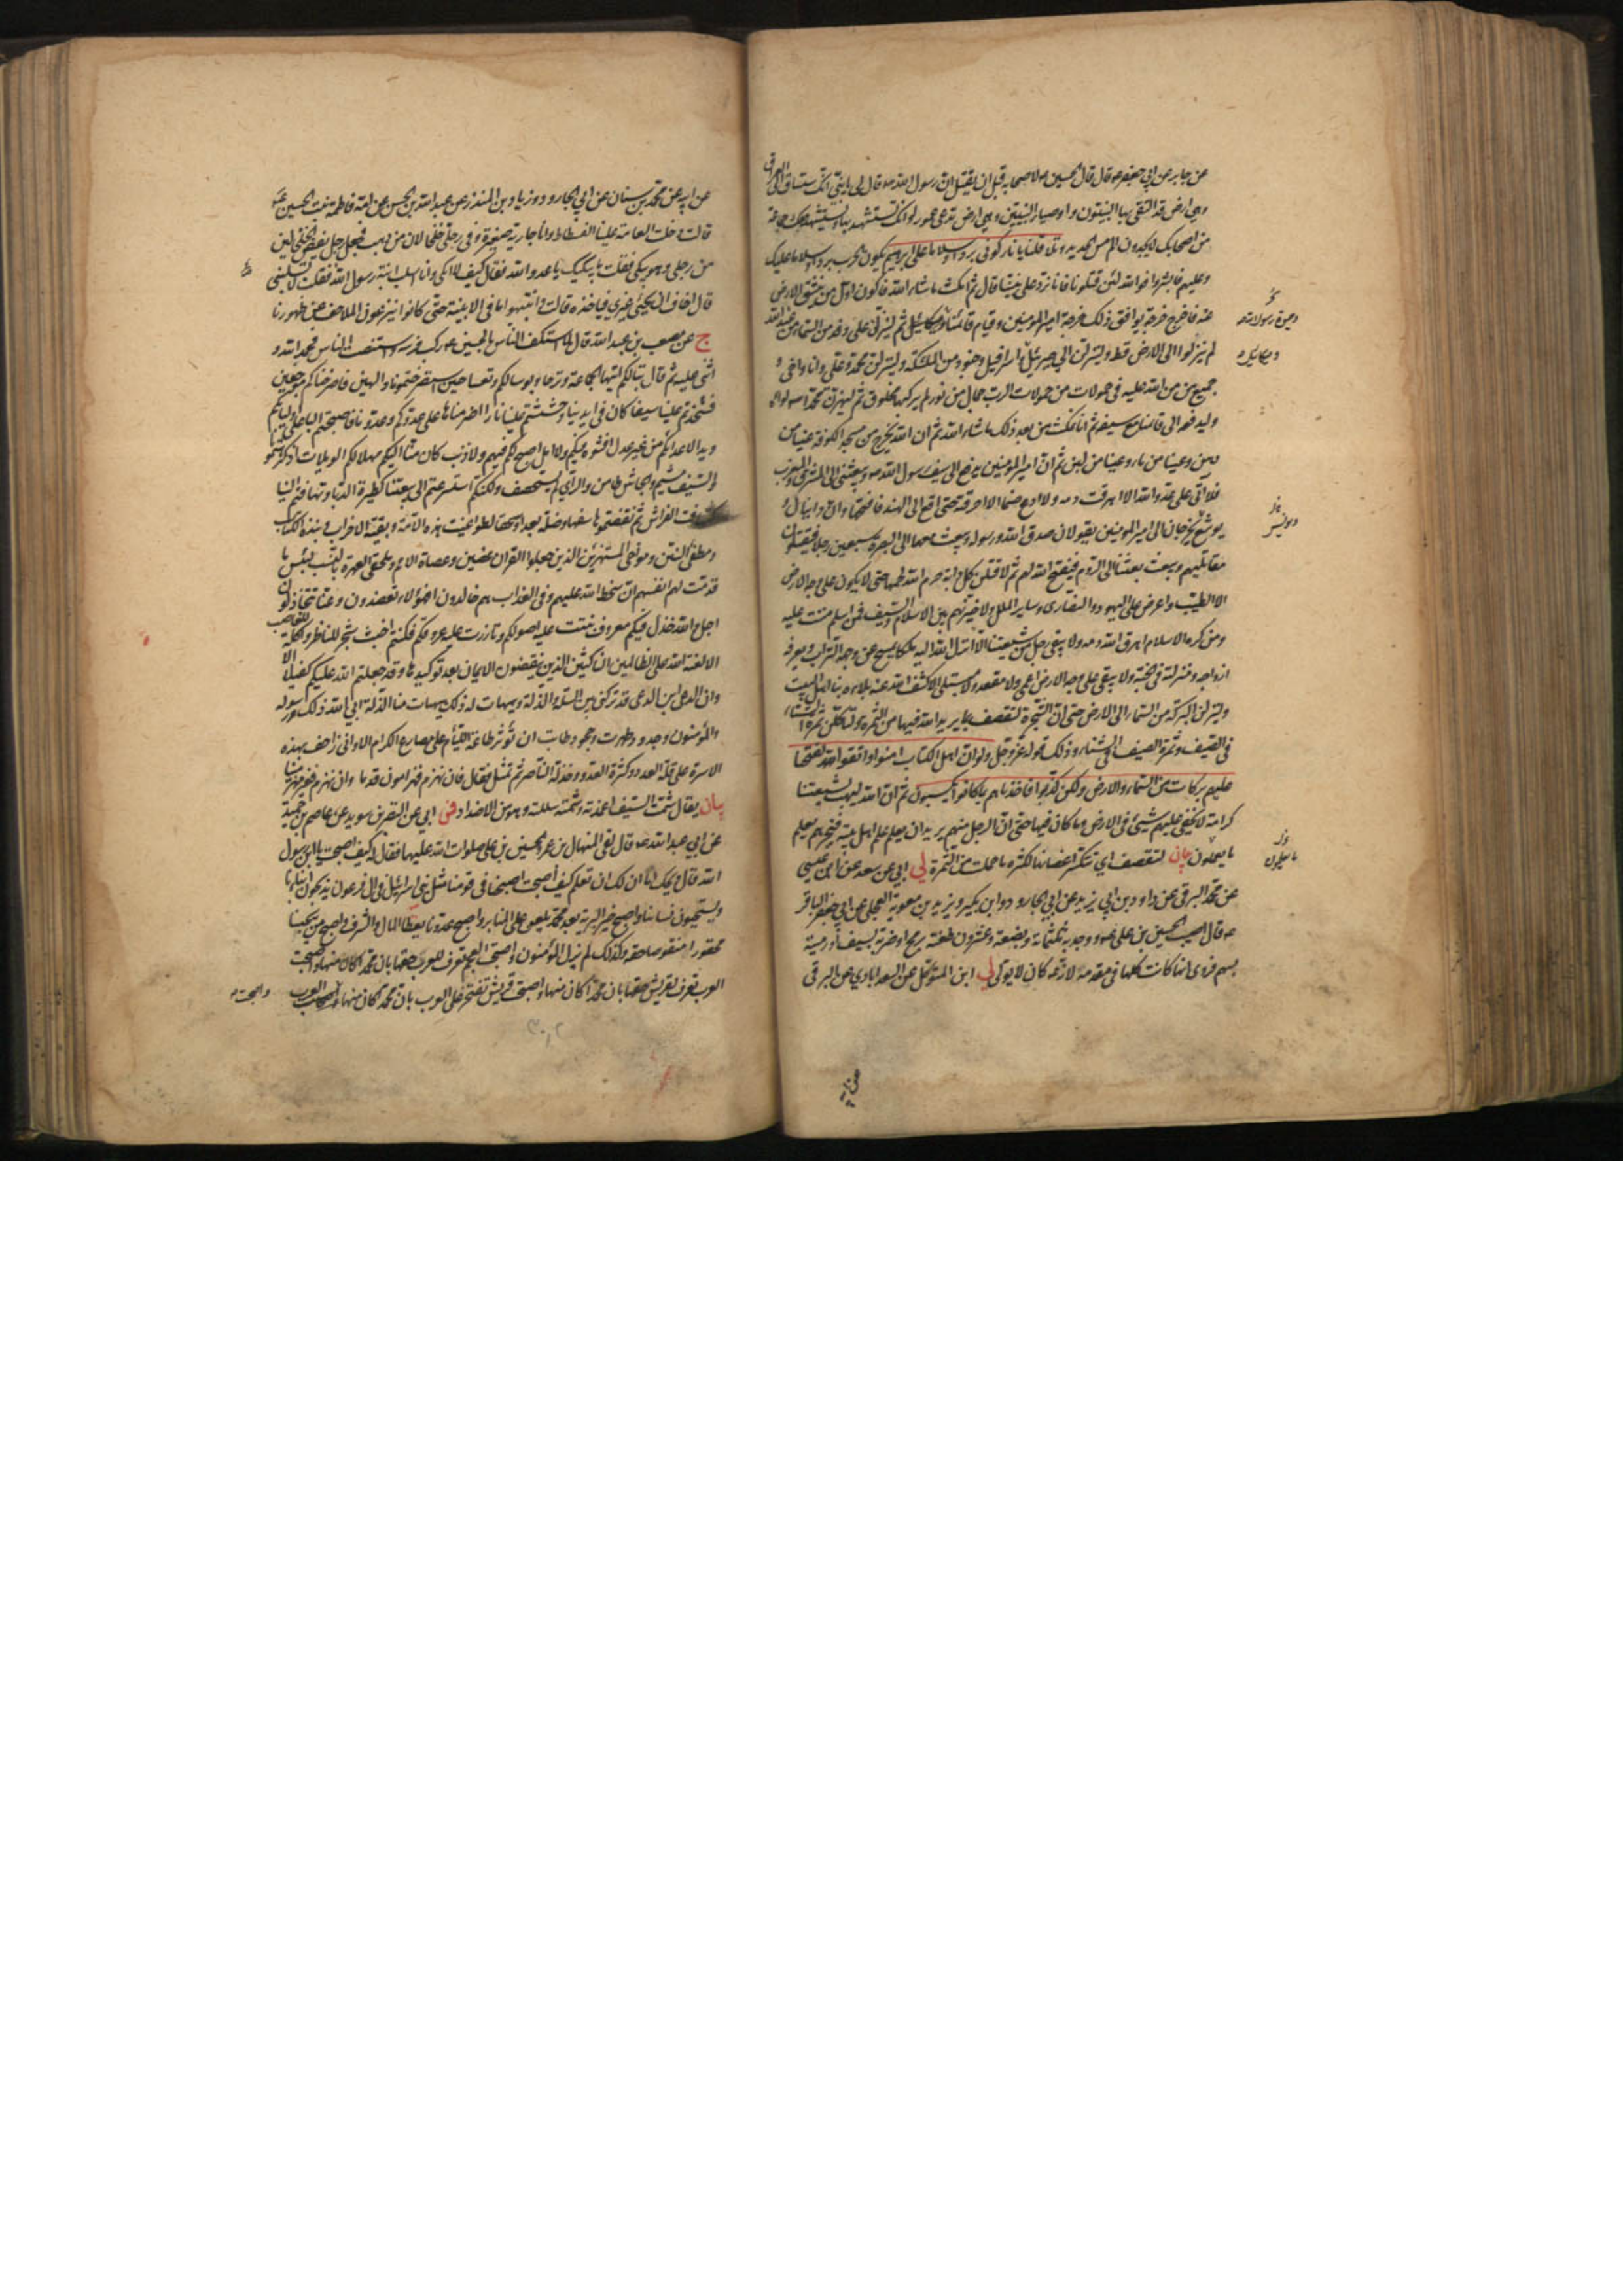 عن جابر عن ابي جعفر ع قال قال الحسين ع لاصحابه قبل ان يقتل ان رسول الله ص قال لي يا بني انك ستساق الى العراق
وهي ارض قد التقى بها النبيون واوصياء النبيين وهي ارض تدعى عمورا وانك تستشهد بها ويستشهد معك جماعة
من اصحابك لا يجدون الم مس الحديد وتلا قلنا يا نار كوني بردا وسلاما على ابرهيم يكون الحرب بردا وسلاما عليك
وعليهم فابشروا فوالله لئن قتلونا فانا نرد على نبينا قال ثم امكث ما شاء الله فاكون اول من ينشق الارض
عنه فاخرج خرجة يوافق ذلك خرجة امير المؤمنين وقيام قائمنا ثم لينزلن على وفد من السماء من عند الله
لم ينزلوا الى الارض قط ولينزلن الي جبرئيل واسرافيل وجنود من الملئكة ولينزلن محمد وعلي وانا واخي و
جميع من من الله عليه في حمولات من حمولات الرب جمال من نور لم يركبها مخلوق ثم ليهزن محمد ص لواه
وليدفعه الى قائمنا مع سيفه ثم انا نمكث من بعد ذلك ما شاء الله ثم ان الله يخرج من مسجد الكوفة عينا من
دهن وعينا من ماء وعينا من لبن ثم ان امير المؤمنين يدفع الي سيف رسول الله ص ويبعثني الى المشرق والمغرب
فلا اتي على عدو الله الا اهرقت دمه ولا ادع صنما الا احرقته حتى اقع الى الهند فافتحها وان دانيال و
يوشع يخرجان الى امير المؤمنين يقولان صدق الله ورسوله ويبعث معهما الى البصرة سبعين رجلا فيقتلون
مقاتليهم ويبعث بعثا الى الروم فيفتح الله لهم ثم لاقتلن كل دابة حرم الله لحمها حتى لا يكون على وجه الارض
الا الطيب واعرض على اليهود والنصارى وساير الملل ولاخيرنهم بين الاسلام والسيف فمن اسلم مننت عليه
ومن كره الاسلام اهرق الله دمه ولا يبقى رجل من شيعتنا الا انزل الله اليه ملكا يمسح عن وجهه التراب ويعرفه
ازواجه ومنزلته في الجنة ولا يبقى على وجه الارض اعمى ولا مقعد ولا مبتلى الا كشف الله عنه بلاءه بنا اهل البيت
ولينزلن البركة من السماء الى الارض حتى ان الشجرة لتقصف بما يريد الله فيها من الثمرة ولتاكلن ثمرة الشتاء
في الصيف وثمرة الصيف في الشتاء وذلك قوله عز وجل ولو ان اهل الكتاب امنوا واتقوا لفتحنا
عليهم بركات من السماء والارض ولكن كذبوا فاخذناهم بما كانوا يكسبون ثم ان الله ليهب لشيعتنا
كرامة لا يخفى عليهم شيئ في الارض وما كان فيها حتى ان الرجل منهم يريد ان يعلم علم اهل بيته فيخبرهم بعلم
ما يعملون بيان لتقصف اي تنكسر اغصانها لكثرة ما حملت من الثمرة لي ابي عن سعد عن ابن عيسى
عن محمد البرقي عن داود بن ابي يزيد عن ابي الجارود وابن بكير وبريد بن معوية العجلي عن ابي جعفر الباقر
ع قال اصيب الحسين بن علي ع ووجد به ثلثمائة وبضعة وعشرون طعنة برمح او ضربة بسيف او رمية
بسهم فروى انها كانت كلها في مقدمه لانه ع كان لا يولي لي ابن المتوكل عن السعدابادي عن البرقي
وميكائيل
عن ابيه عن محمد بن سنان عن ابي الجارود زياد بن المنذر عن عبد الله بن الحسن عن امه فاطمة بنت الحسين ع
قالت دخلت العامة علينا الفسطاط وانا جارية صغيرة وفي رجلي خلخالان من ذهب فجعل رجل يفض الخلخالين
من رجلي وهو يبكي فقلت ما يبكيك يا عدو الله فقال كيف لا ابكي وانا اسلب ابنة رسول الله فقلت لا تسلبني
قال اخاف ان يجيئ غيري فياخذه قالت وانتهبوا ما في الابنية حتى كانوا ينزعون الملاحف عن ظهورنا
ج عن مصعب بن عبد الله قال لما استكف الناس بالحسين ع ركب فرسه واستنصت الناس فحمد الله و
اثنى عليه ثم قال تبا لكم ايتها الجماعة وترحا وبؤسا لكم وتعسا حين استصرختمونا ولهين فاصرخناكم موجفين
فشحذتم علينا سيفا كان في ايدينا وحششتم علينا نارا اضرمناها على عدوكم وعدونا فاصبحتم البا على اوليائكم
ويدا لاعدائكم من غير عدل افشوه فيكم ولا امل اصبح لكم فيهم ولا ذنب كان منا اليكم فهلا لكم الويلات اذ كرهتمونا
والسيف مشيم والجاش طامن والراي لم يستحصف ولكنكم استسرعتم الى بيعتنا كطيرة الدبا وتهافتم اليها
كتهافت الفراش ثم نقضتموها سفها وضلة بعدا وسحقا لطواغيت هذه الامة وبقية الاحزاب ونبذة الكتاب
ومطفئ السنن ومؤاخي المستهزئين الذين جعلوا القران عضين وعصاة الامم وملحقي العهرة بالنسب لبئس ما
قدمت لهم انفسهم ان سخط الله عليهم وفي العذاب هم خالدون افهؤلاء تعضدون وعنا تتخاذلون
اجل والله خذل فيكم معروف نبتت عليه اصولكم وتازرت عليه عروقكم فكنتم اخبث شجر للناظر واكلة للغاصب
الا لعنة الله على الظالمين الناكثين الذين ينقضون الايمان بعد توكيدها وقد جعلتم الله عليكم كفيلا الا
وان الدعي ابن الدعي قد تركني بين السلة والذلة وهيهات له ذلك هيهات منا الذلة ابى الله ذلك ورسوله
والمؤمنون وجدود طهرت وحجور طابت ان نؤثر طاعة اللئام على مصارع الكرام الا واني زاحف بهذه
الاسرة على قلة العدد وكثرة العدو وخذلة الناصر ثم تمثل فقال فان نهزم فهزامون قدما وان نهزم فغير مهزمينا
بيان يقال شمت السيف اغمدته وشمته سللته وهو من الاضداد فس ابي عن النضر بن سويد عن عاصم بن حميد
عن ابي عبد الله ع قال لقي المنهال بن عمر علي بن الحسين بن علي صلوات الله عليهما فقال له كيف اصبحت يا ابن رسول
الله قال ويحك اما ان لك ان تعلم كيف اصبحت اصبحنا في قومنا مثل بني اسرائيل في ال فرعون يذبحون ابناءنا
ويستحيون نساءنا واصبح خير البرية بعد محمد يلعن على المنابر واصبح عدونا يعطى المال والشرف واصبح من يحبنا
محقورا منقوصا حقه وكذلك لم يزل المؤمنون واصبحت العجم تعرف للعرب حقها بان محمدا كان منها واصبحت
العرب تعرف لقريش حقها بان محمدا كان منها واصبحت قريش تفتخر على العرب بان محمدا كان منها واصبحت العرب